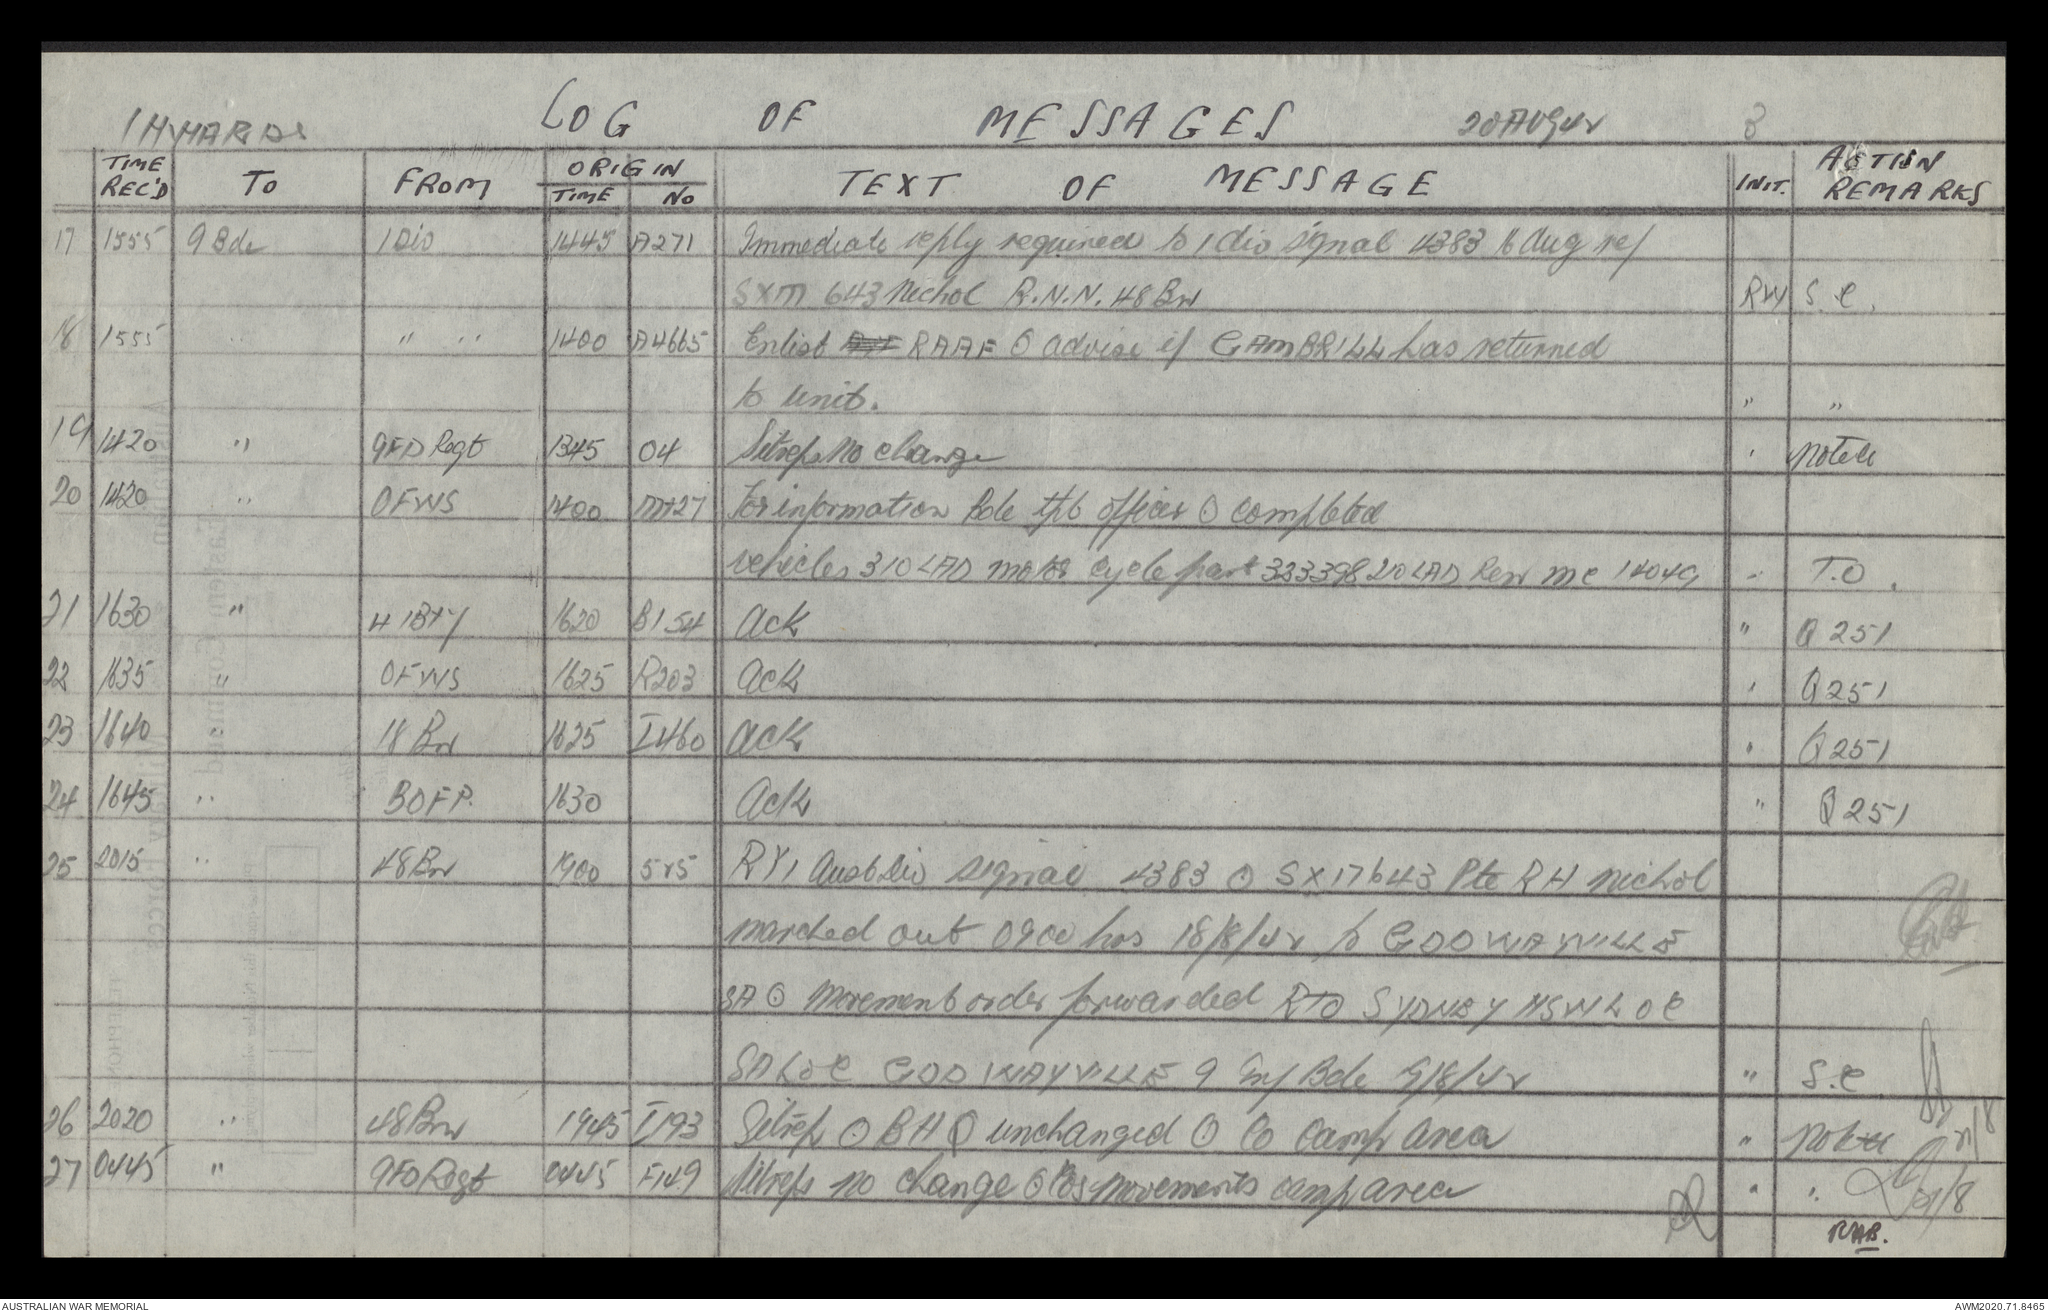 INWARDS LOG OF MESSAGES 20 AUG 42 3
TIME REC'D TO FROM ORIGIN TIME No TEXT OF MESSAGE INIT. ACTION REMARKS
17 1555 9 Bde 1 Div 1445 A271 Immediate reply required to 1 div signal 4383 16 Aug ref
SXM 643 Nichol R.N.N. 48 Bn RW S.C.
18 1555 " " " 1400 A4665 Enlist RAAF ⊙ advise if GAMBRILL has returned
to unit. " "
19 1420 " 9 FD Regt 1345 04 Sitrep no change " Noted
20 1420 " OFWS 1400 M427 For information Bde tpt officer ⊙ completed
vehicles 310 LAD motor cycle part 333398 210 LAD Rear mc 14049 " T.O.
21 1630 " H 1 BTY 1620 B154 Ack " Q 251
22 1635 " OFWS 1625 R203 Ack " Q 251
23 1640 18 Bn 1625 I460 Ack " Q 251
24 1645 " BOFP. 1630 Ack " Q 251
25 2015 " 48 Bn 1900 525 RY 1 Aust Div signal 4383 ⊙ SX17643 Pte RH Nichol
marched out 0900 hrs 18/8/42 to GOODWAYVILLE
SA ⊙ Movement order forwarded RTO SYDNEY NSW L OF C
SA L of C GOODWAYVILLE 9 Inf Bde 19/8/42 " S.C.
26 2020 " 48 Bn 1945 I193 Sitrep ⊙ BHQ unchanged ⊙ Co camp area " Noted 21/8
27 0445 " 9 FD Regt 0445 F149 Sitrep no change ⊙ Pos movements camp area " " 21/8
RAB.
AUSTRALIAN WAR MEMORIAL AWM2020.71.8465